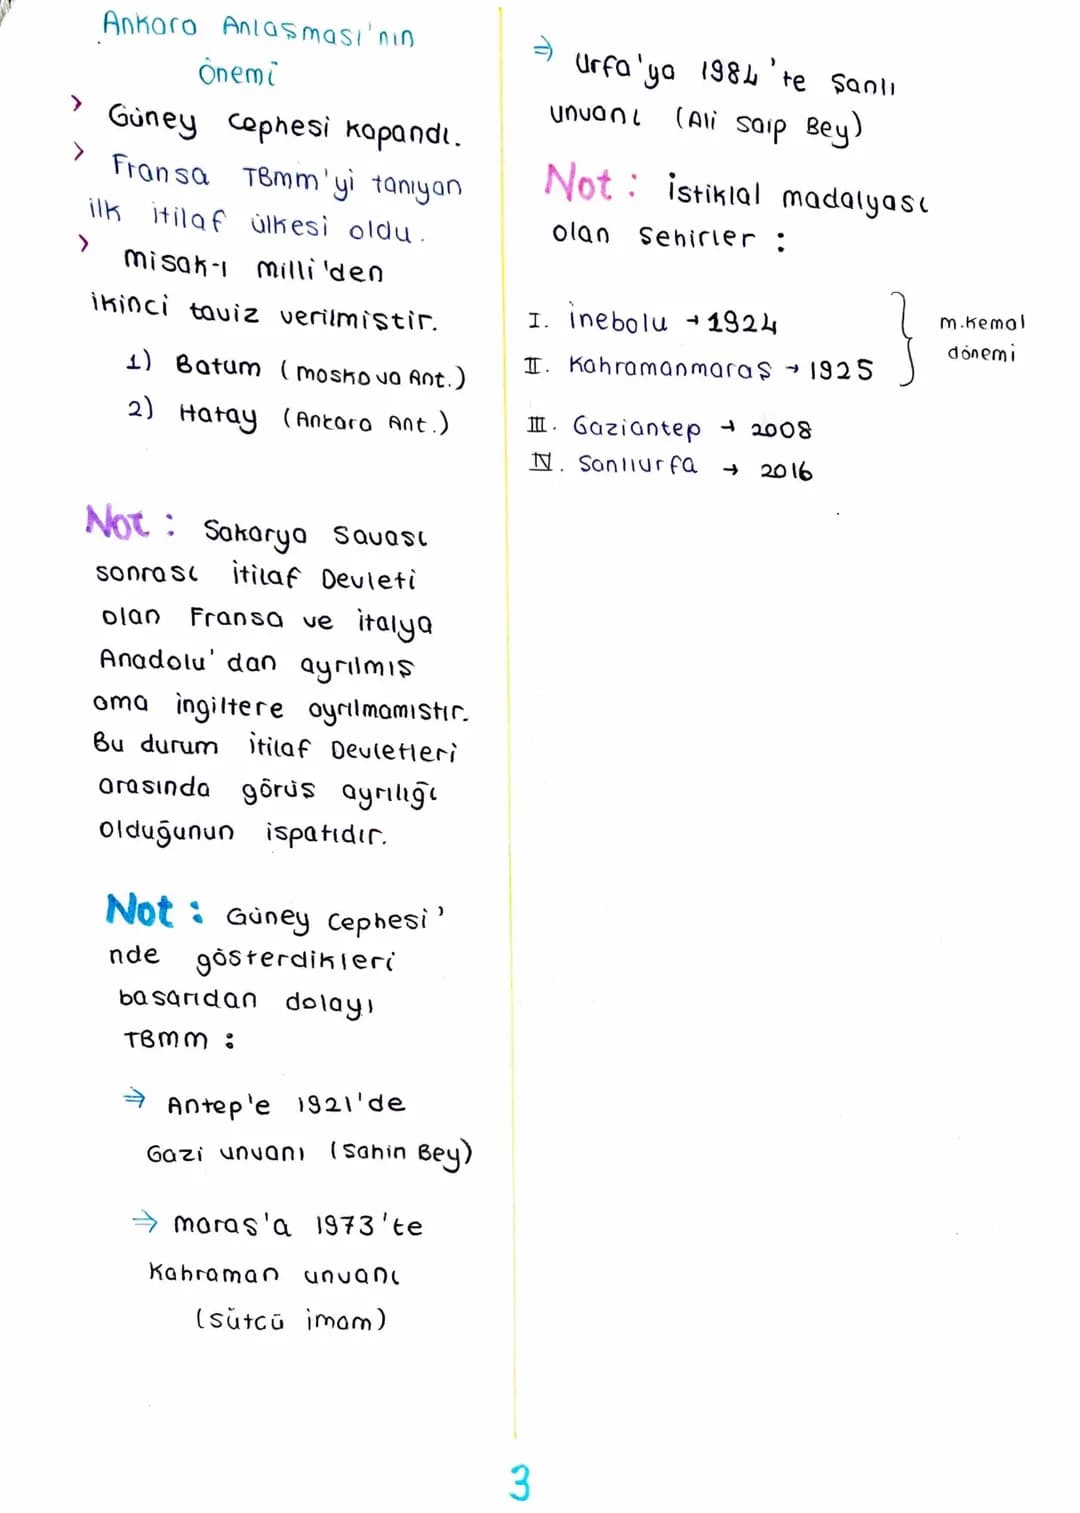 Ankara Anlaşması'nın
Önemi
> Güney Cephesi kapandı.
> Fransa TBMM'yi tanıyan
ilk itilaf ülkesi oldu.
> misak-ı milli'den
ikinci taviz verilmiştir.
1) Batum (moskova Ant.)
2) Hatay (Ankara Ant.)
Not: Sakarya Savası
sonrası itilaf Devleti
olan Fransa ve italya
Anadolu'dan ayrılmış
ama ingiltere ayrılmamıstır.
Bu durum itilaf Devletleri
arasında görüş ayrılığı
olduğunun ispatıdır.
Not: Güney Cephesi'
nde gösterdikleri
basarıdan dolayı
TBMM:
⇒ Antep'e 1921'de
Gazi unvanı (Sahin Bey)
⇒ maras'a 1973'te
Kahraman unvanı
(sütcü imam)
⇒ Urfa'ya 1984'te Şanlı
unvanı (Ali saip Bey)
Not: istiklal madalyası
olan sehirler:
I. inebolu → 1924
II. Kahramanmaraş → 1925
m.Kemal
dönemi
III. Gaziantep → 2008
IV. Sanlıurfa → 2016
3